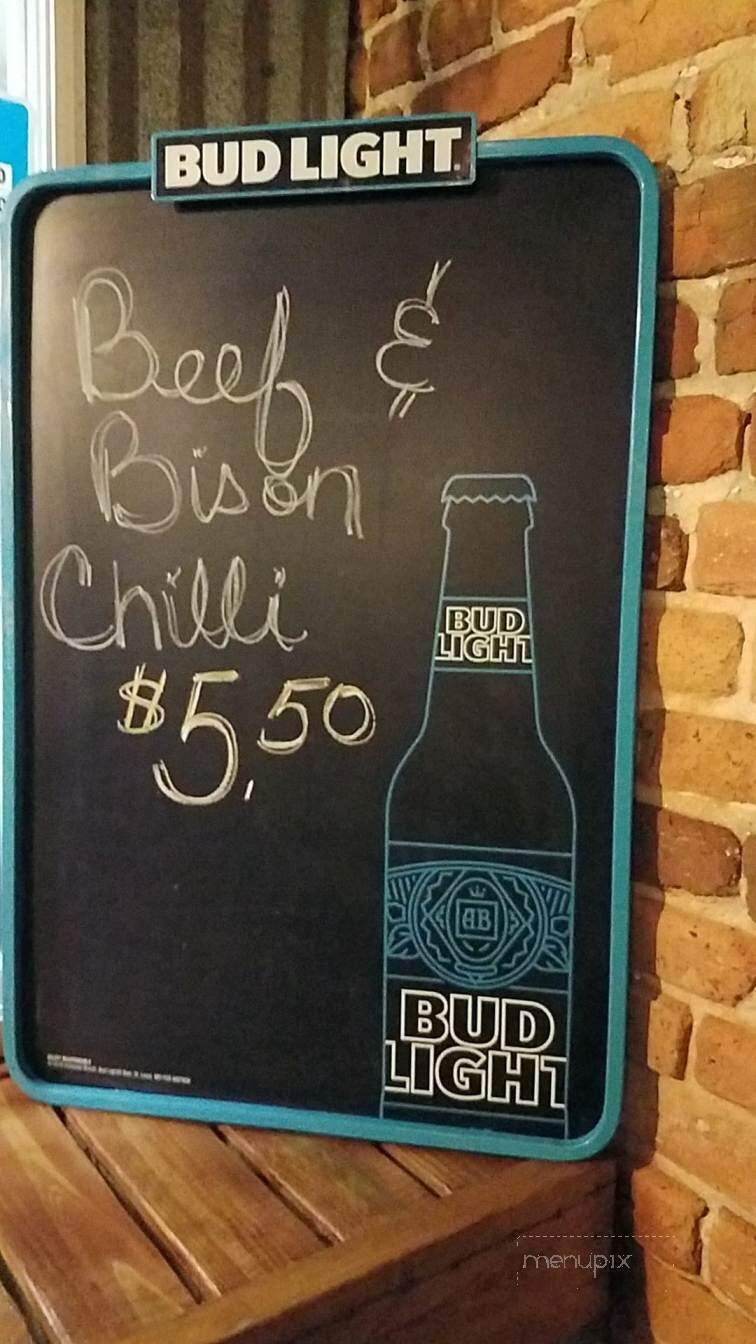 BUD LIGHT
Beef &
Bison
Chilli
$5.50
BUD
LIGHT
AB
BUD
LIGHT
menupix